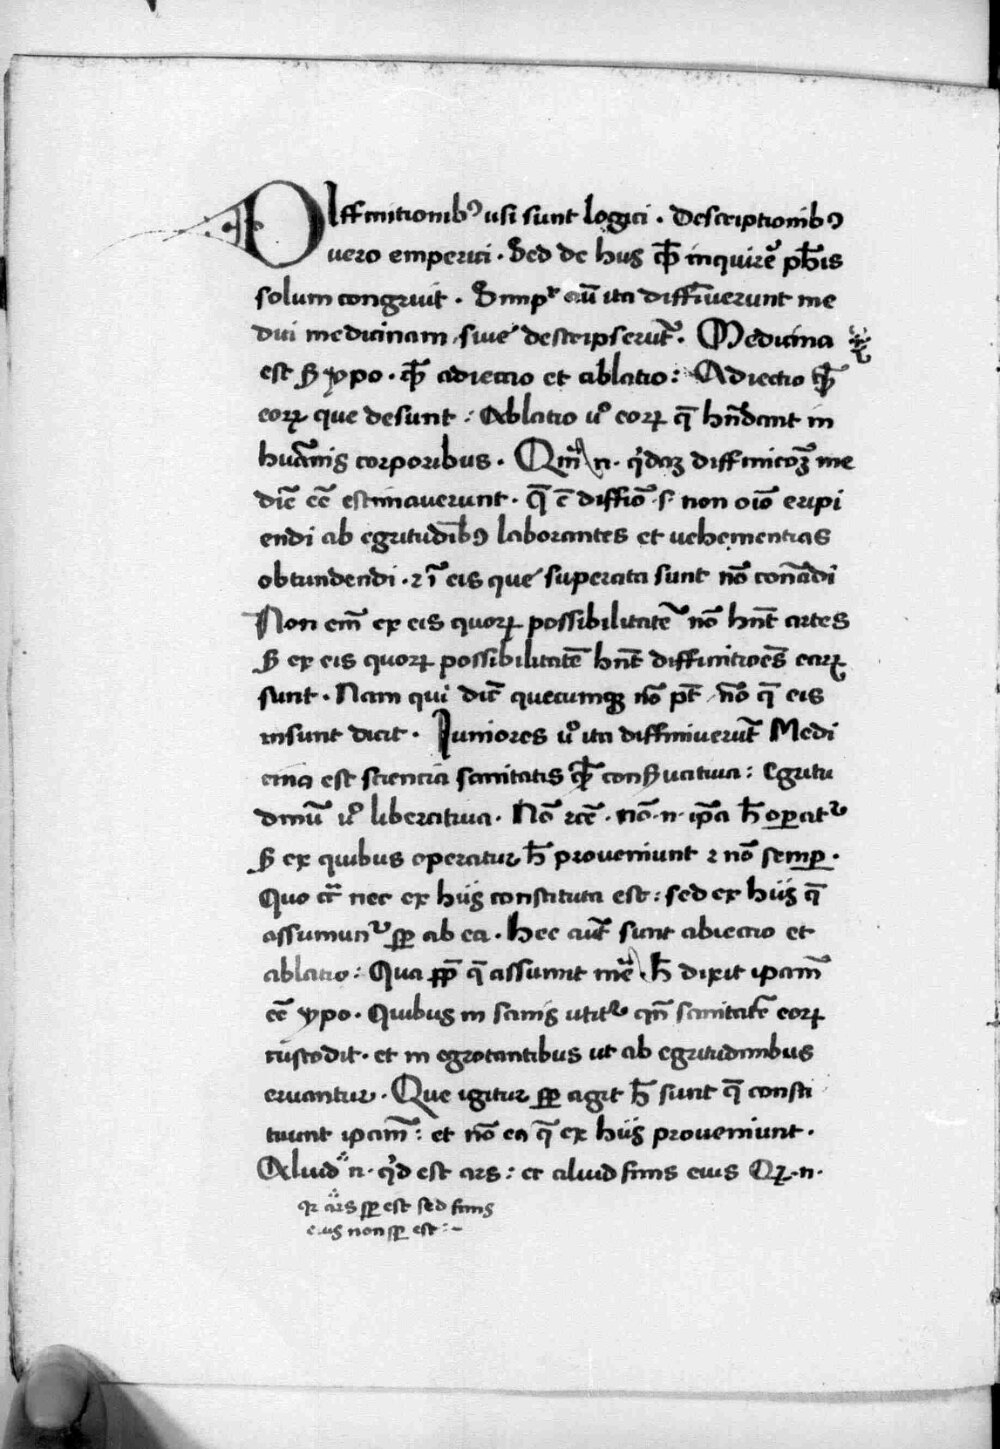 Diffinitionibꝰ usi sunt logici · Descriptionibꝰ
uero emperici · Sed de hijs inquirẽ ph̃is
solum congruit · Simpˡʳ aũ ita diffiniuerunt me
dici medicinam siue descripserũt · Medicina
est ẞ ypo · adiectio et ablatio : Adiectio
eoꝝ que desunt : Ablatio uº eoꝝ q̃ hñdant in
huãnis corporibus · Qm̃ n · qͥdaꝫ diffinicoꝫ me
dic̃ eẽ estimauerunt · q̃ ẽ diffiõ s non oĩo eripi
endi ab egritudĩbꝰ laborantes et uehementias
obtundendi · ⁊ ĩ eis que superata sunt nõ conãdi
Non em̃ ex eis quoꝝ possibilitatẽ nõ hñt artes
ẞ ex eis quoꝝ possibilitatẽ hñt diffinitioẽs eaꝝ
sunt · Nam qui dic̃t quecumqꝫ nõ põt nõ q̃ eis
insunt dicit · Iuniores uº ita diffiniuerũt Medi
cina est sciencia sanitatis conẞuatiua : Egritu
dinũ uº liberatiua · Nõ rc̃e · nõ · n · ip̃a h̃ operatᷣ
ẞ ex quibus operatur h̃ proueniunt ⁊ nõ semꝑ ·
Quo cr̃ nec ex hijs constituta est : sed ex hijs q̃
assumunᷣ sꝑ ab ea · hec aũt sunt abiectio et
ablatio : Qua ꝓp̃ q̃ assumit mẽ h̃ dixit ipam̃
eẽ ypo · Quibus in sanis utitᷣ qñ sanitatẽ eoꝝ
custodit · et in egrotantibus ut ab egritudinibus
eruantur · Que igitur sꝑ agit h̃ sunt q̃ consti
tuunt ipam̃ : et nõ ea q̃ ex hijs proueniunt ·
Aliud n · qͥd est ars : et aliud finis eius Qꝝ · n ·
qꝛ ars sꝑ est sed finis
eius non sꝑ est : ~